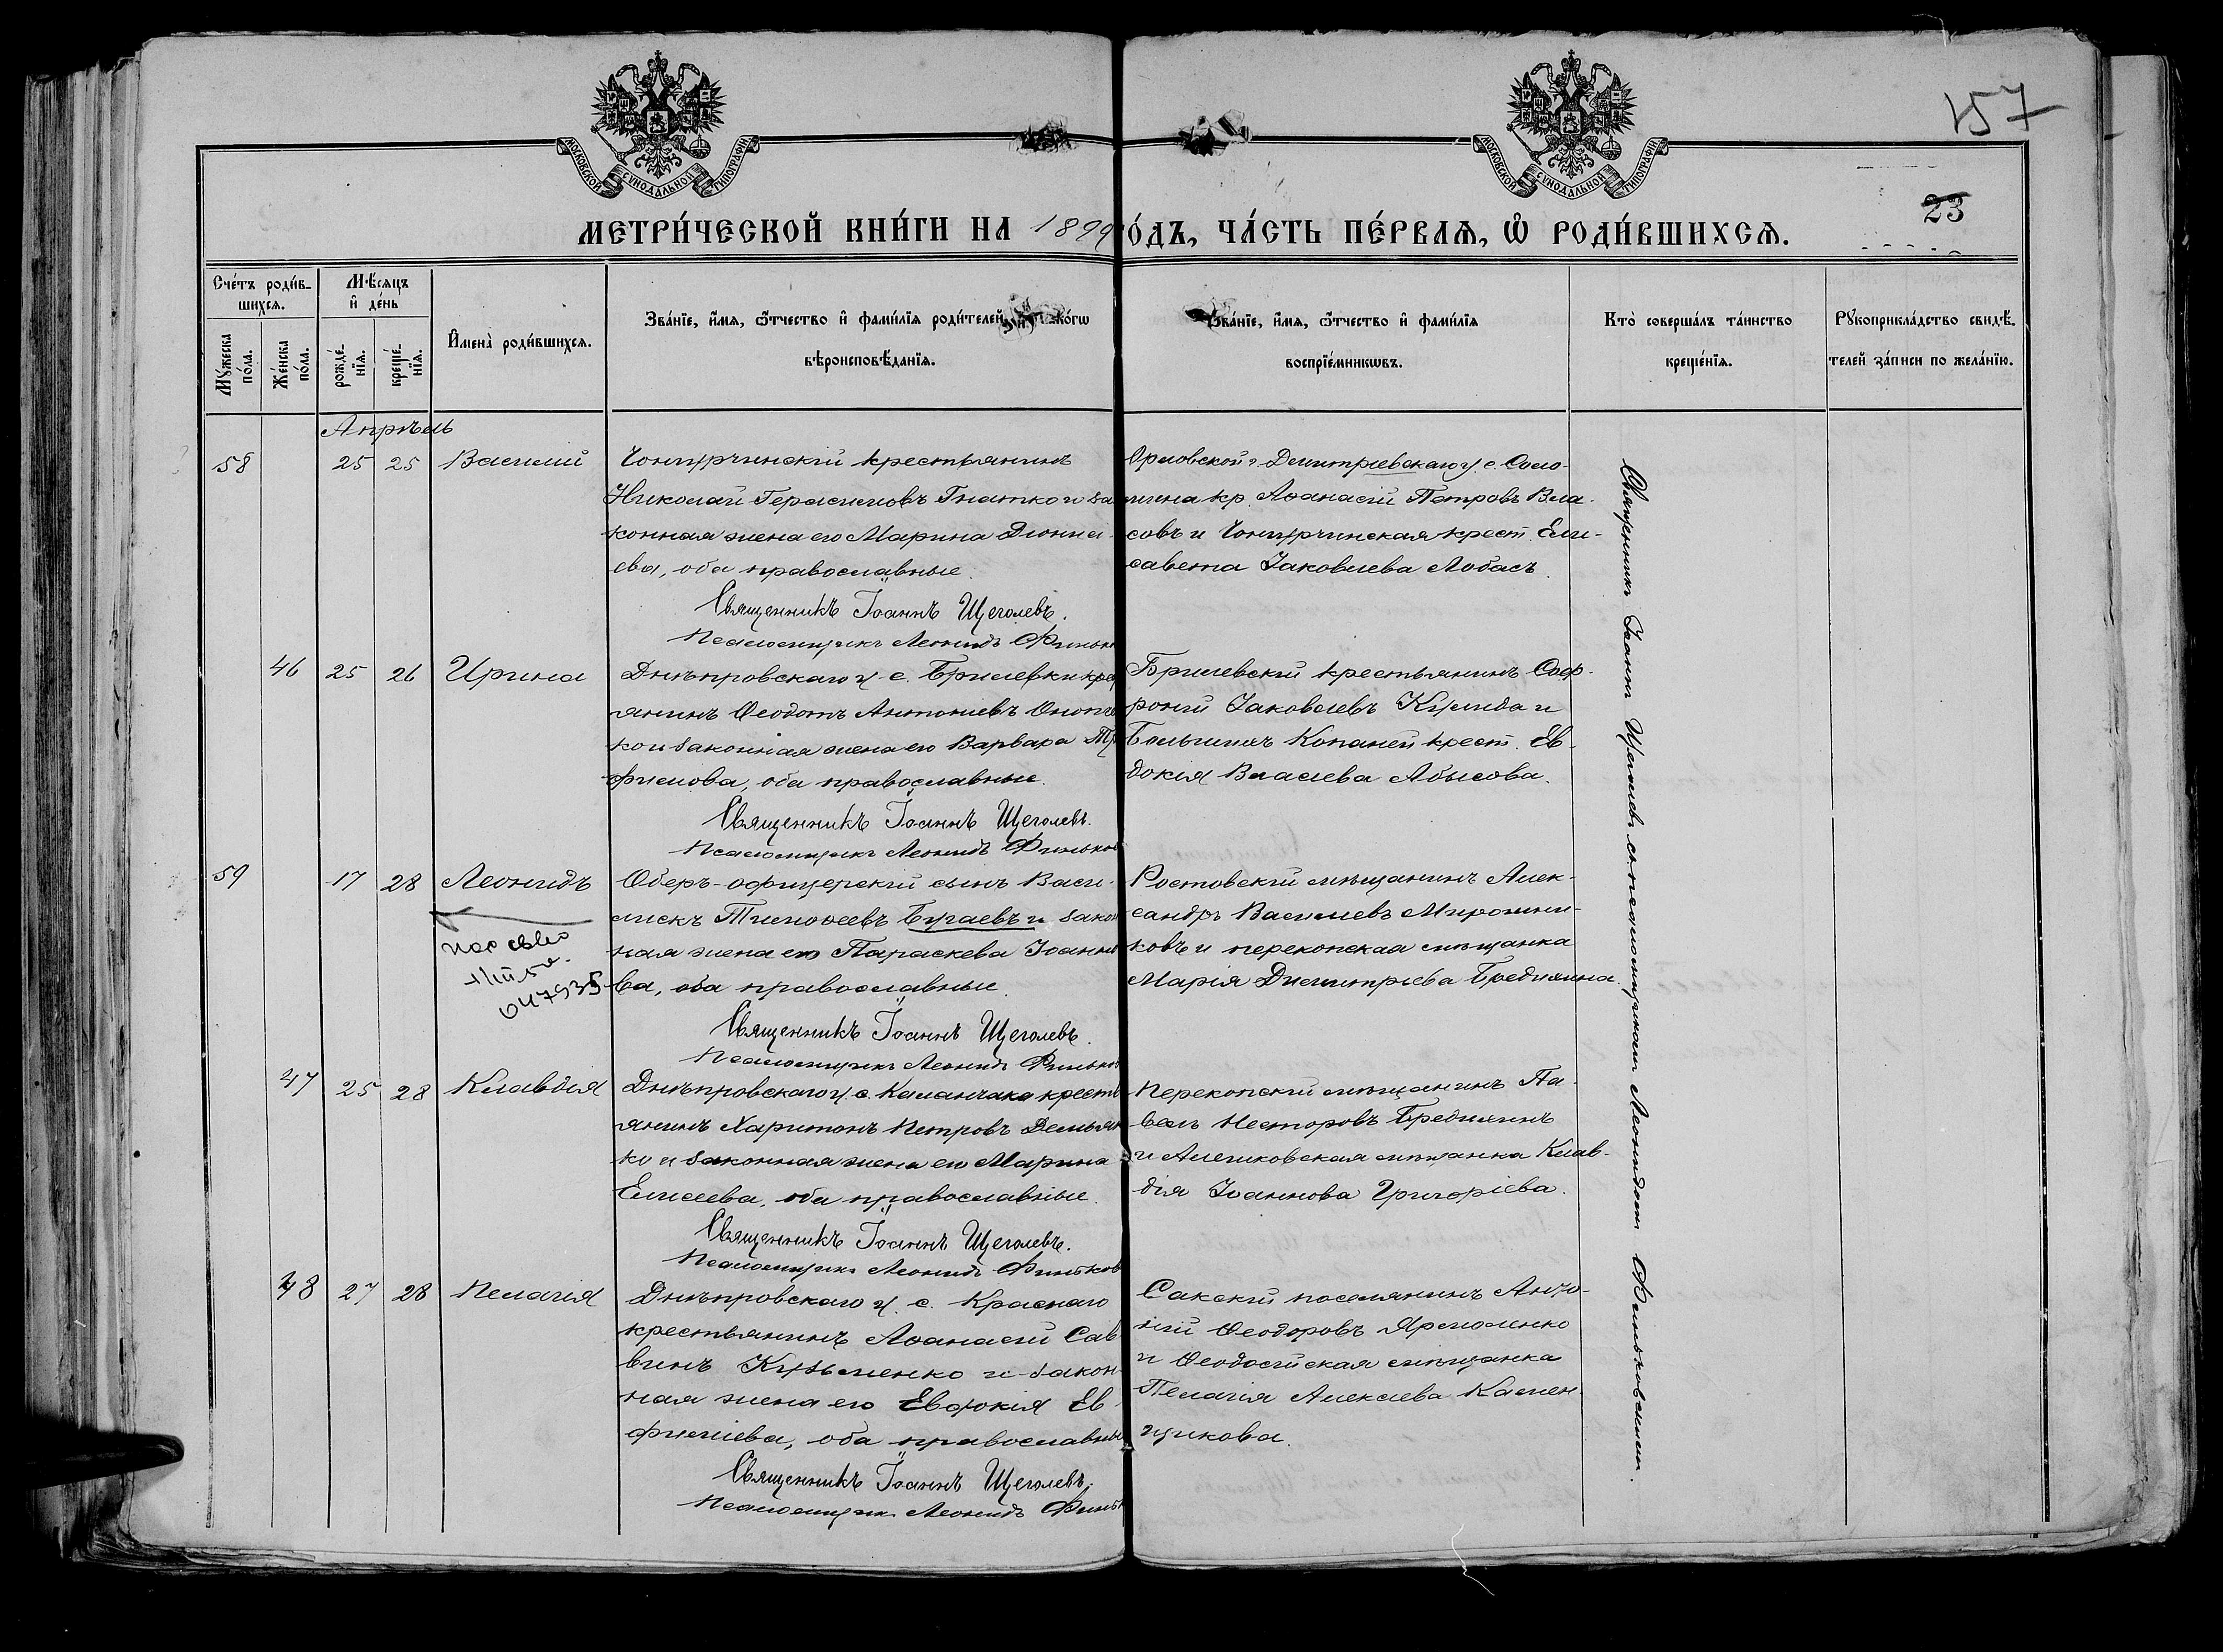 157
МОСКОВСКОЙ СѴНОДАЛЬНОЙ ТИПОГРАФІИ
МОСКОВСКОЙ СѴНОДАЛЬНОЙ ТИПОГРАФІИ
23
МЕТРИ́ЧЕСКОЙ КНИ́ГИ НА 1899 О́ДЪ, ЧА́СТЬ ПЕ́РВАѦ, Ѡ҆ РОДИ́ВШИХСѦ.
Сче́тъ роди́в-
шихсѧ.
Мꙋжеска по́ла.
Же́нска по́ла.
Мѣ́сѧцъ
и҆ де́нь
рожде́-нїѧ.
креще́-нїѧ.
И҆мена̀ роди́вшихсѧ.
Зва́нїе, и҆́мѧ, ѻ҆́тчество и҆ фами́лїѧ роди́телей, и҆ ко́гѡ
вѣроисповѣ́данїѧ.
Зва́нїе, и҆́мѧ, ѻ҆́тчество и҆ фами́лїѧ
воспрїе́мникѡвъ.
Кто̀ соверша́лъ та́инство
креще́нїѧ.
Рꙋкоприкла́дство свидѣ́-
телей за́писи по жела́нїю.
Апрѣль
58 25 25 Василій
Чонгурчинскій крестьянинъ
Николай Герасимовъ Гнатко и за
конная жена его Марина Діониси-
ева, оба православные.
Священникъ Іоаннъ Щеголевъ.
Псаломщикъ Леонидъ Финьк
Орловской г. Димитріевскаго у. с. Соло-
мина кр. Аѳанасій Петровъ Вла-
совъ и Чонгурчинская крест. Ели-
савета Іаковлева Лобасъ
46 25 26 Ирина
Днѣпровскаго у. с. Брилевки крес
янинъ Ѳеодотъ Антоніевъ Оноп
ко и законная жена его Варвара Тр
фимова, оба православные.
Священникъ Іоаннъ Щеголевъ.
Псаломщикъ Леонидъ Финьков
Брилевскій крестьянинъ Соф-
роній Іаковлевъ Кулида и
Большихъ Копаней крест. Ев-
докія Власіева Абысова.
59 17 28 Леонидъ
647935
Оберъ-офицерскій сынъ Васи-
лискъ Тимоѳеевъ Бугаевъ и закон
ная жена его Параскева Іоанно
ва, оба православные.
Священникъ Іоаннъ Щеголевъ.
Псаломщикъ Леонидъ Финьков
Ростовскій мѣщанинъ Алек-
сандръ Василіевъ Мирошни-
ковъ и перекопская мѣщанка
Марія Димитріева Бреднина.
47 25 28 Клавдія
Днѣпровскаго у. с. Каланчака кресть
янинъ Харитонъ Петровъ Демьян
ко и законная жена его Марина
Елисеева, оба православные.
Священникъ Іоаннъ Щеголевъ.
Псаломщикъ Леонидъ Финьков
Перекопскій мѣщанинъ Па-
велъ Несторовъ Бреднинъ
и Алешковская мѣщанка Клав-
дія Іоаннова Григоріева.
48 27 28 Пелагія
Днѣпровскаго у. с. Краснаго
крестьянинъ Аѳанасій Сав
винъ Кузьменко и закон
ная жена его Евдокія Ев-
фиміева, оба православны
Священникъ Іоаннъ Щеголевъ.
Псаломщикъ Леонидъ Финьк
Сакскій поселянинъ Анто-
ній Ѳеодоровъ Ярмоленко
и Ѳеодосійская мѣщанка
Пелагія Алексіева Камен-
щикова.
Священникъ Іоаннъ Щеголевъ съ псаломщикомъ Леонидомъ Финьковскимъ.